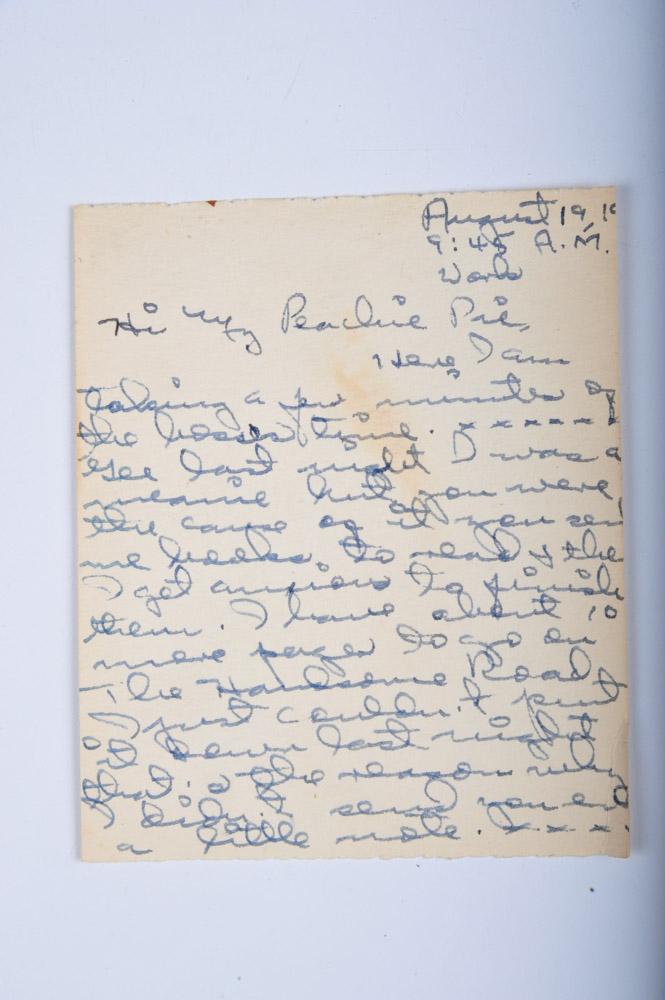 August 19, 19
9:45 A.M.
Work
Hi My Peachie Pie,
Here I am
taking a few minutes of
the bosses time. x x x x x x
Gee last night I was a
meanie but you were
the cause of it you send
me books to read & the
I get anxious to finish
them. I have about 10
more pages to go on
The Handsome Road
I just couldn't put
it down last night
that is the reason why
I didn't send you
a little note. x x x